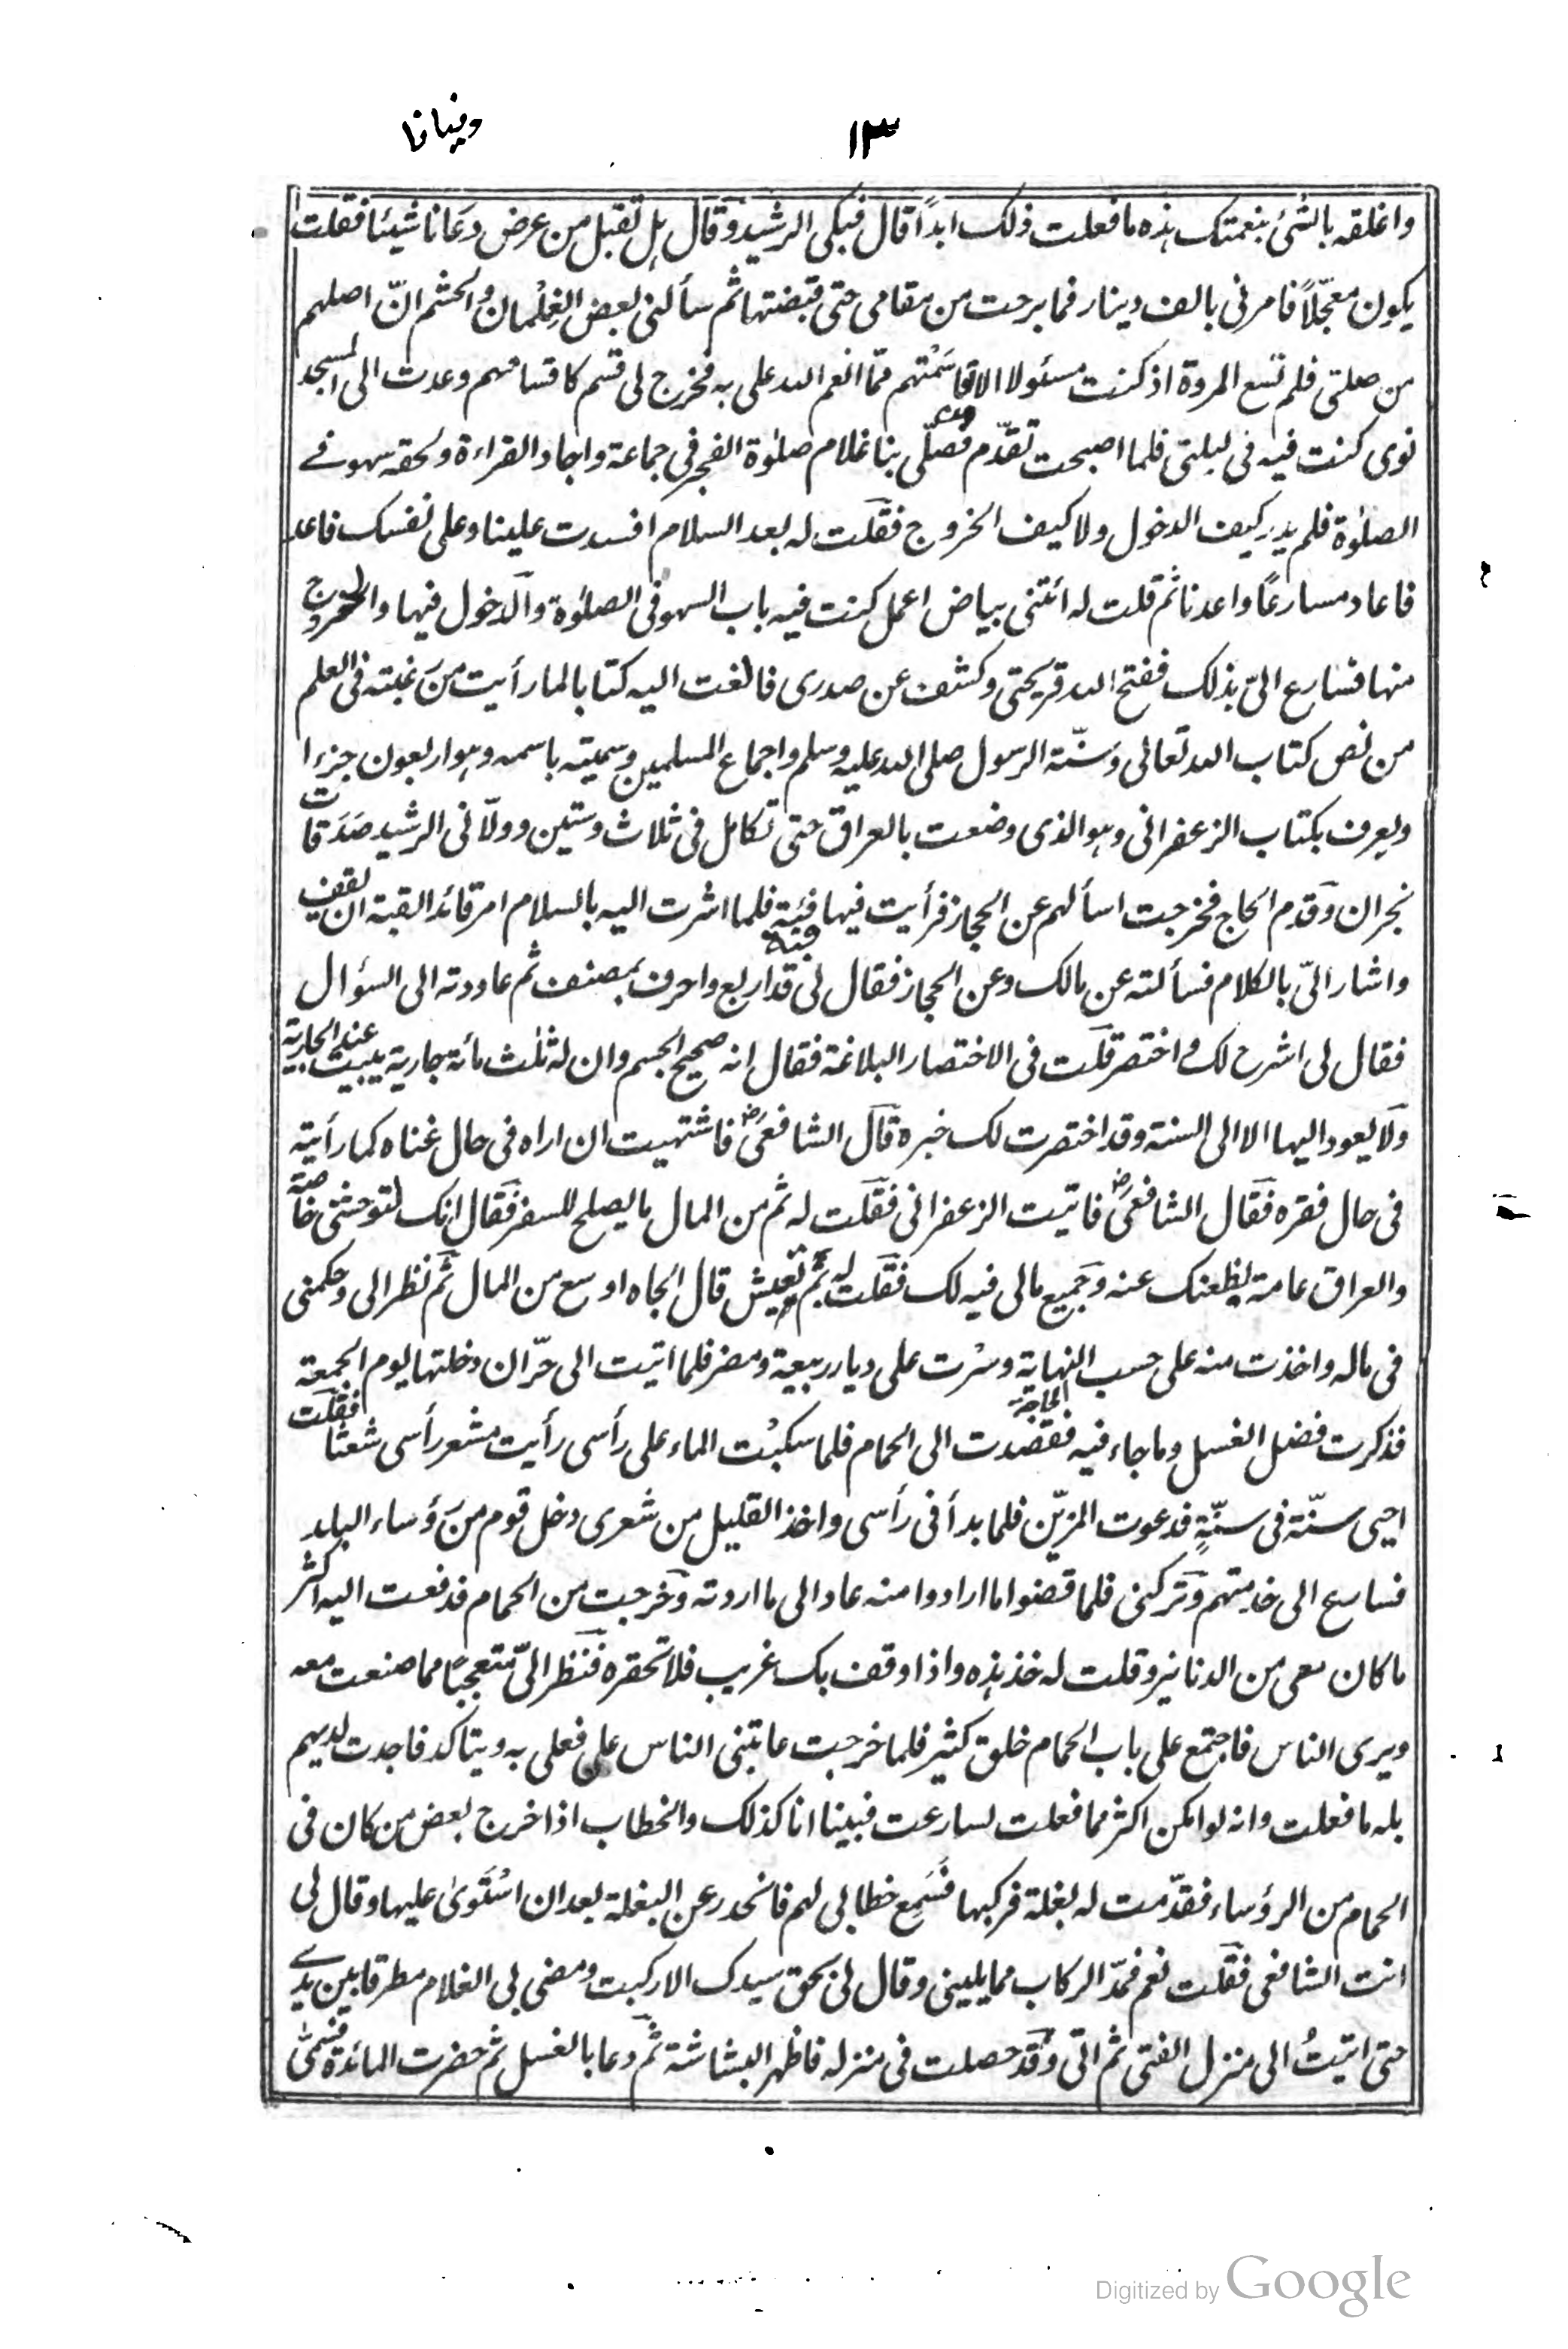 ١٣
واغلقه بالشئ بنعمتك هذه ما فعلت ذلك ابدًا قال فبكى الرشيد وقال هل تقبل من عرض دعانا شيئا فقلت
يكون معجّلًا فامر لى بالف دينار فما برحت من مقامى حتى قبضتها ثم سألنى بعض الغلمان والحشم انّ اصلهم
من صلتى فلم تسع المروة اذ كنت مسئولا الا قاسمتهم ممّا انعم الله على به فخرج لى قسم كاقسامهم وعدت الى المسجد
نوى كنت فيه فى ليلتى فلما اصبحت تقدّم فصلّى بنا غلام صلوة الفجر فى جماعة واجاد القراءة ولحقه سهو فے
الصلوة فلم يدر كيف الدخول ولا كيف الخروج فقلت له بعد السلام افسدت علينا وعلى نفسك فاعد
فاعاد مسارعًا واعدنا ثم قلت له ائتنى ببياض اعمل كنت فيه باب السهو فى الصلوة والدخول فيها والخروج
منها فسارع الىّ بذلك ففتح الله قريحتى وكشف عن صدرى فالفت اليه كتابا لما رأيت من رغبته فى العلم
من نص كتاب الله تعالى وسنّة الرسول صلى الله عليه وسلم واجماع المسلمين وسميته باسمه وهو اربعون جزءا
ويعرف بكتاب الزعفرانى وهو الذى وضعت بالعراق حتى تكامل فى ثلاث وستين وولّانى الرشيد صدقات
نجران وقدم الحاج فخرجت اسألهم عن الحجاز فرأيت فيها فئة فلما اشرت اليه بالسلام امر قائد القبة ان يقف
قبة
واشار الىّ بالكلام فسألته عن مالك وعن الحجاز فقال لى قد اربع واحرف بمصنف ثم عاودته الى السؤال
فقال لى اشرح لك او اختصر قلت فى الاختصار البلاغة فقال انه صحيح الجسم وان له ثلث مائة جارية يبيت عند الجارية
ولا يعود اليها الا الى السنة وقد اختصرت لك خبره قال الشافعى رض فاشتهيت ان اراه فى حال غناه كما رأيته
فى حال فقره فقال الشافعى رض فاتيت الزعفرانى فقلت له ثم من المال ما يصلح للسفر فقال انك لتوحشنى خاصة
والعراق عامة يظعنك عنه وجميع مالى فيه لك فقلت له ثم تعيش قال الجاه اوسع من المال ثم نظر الى وحكمنى
فى ماله واخذت منه على حسب النهاية وسرت على ديار ربيعة ومضر فلما اتيت الى حرّان دخلتها يوم الجمعة
فذكرت فضل الغسل وما جاء فيه فقصدت الى الحمام فلما سكبت الماء على رأسى رأيت مشعر رأسى شعثا فقلت
احيى سنّة فى سنّةٍ فدعوت المزيّن فلما بدأ فى رأسى واخذ القليل من شعرى دخل قوم من رؤساء البلد
فسارع الى خدمتهم وتركنى فلما قضوا ما ارادوا منه عاد الى ما اردته وخرجت من الحمام فدفعت اليه اكثر
ما كان معى من الدنانير وقلت له خذ هذه واذا وقف بك غريب فلا تحقره فنظر الىّ متعجبًا مما صنعت معه
ويرى الناس فاجتمع على باب الحمام خلق كثير فلما خرجت عاتبنى الناس على فعلى به ويتاكد فاجدت لديهم
بله ما فعلت وانه لو امكن اكثر مما فعلت لسارعت فبينا انا كذلك والخطاب اذا خرج بعض من كان فى
الحمام من الرؤساء فقدّمت له بغلة فركبها فسمع خطابى لهم فانحدر عن البغلة بعد ان استوى عليها وقال لى
انت الشافعى فقلت نعم فمدّ الركاب مما يلينى وقال لى بحق سيدك الا ركبت ومضى بى الغلام مطرقا بين يدے
حتى اتيتُ الى منزل الفتى ثم اتى وقد حصلت فى منزله فاظهر البشاشة ثم دعا بالغسل ثم حضرت المائدة فسمّى
Digitized by Google